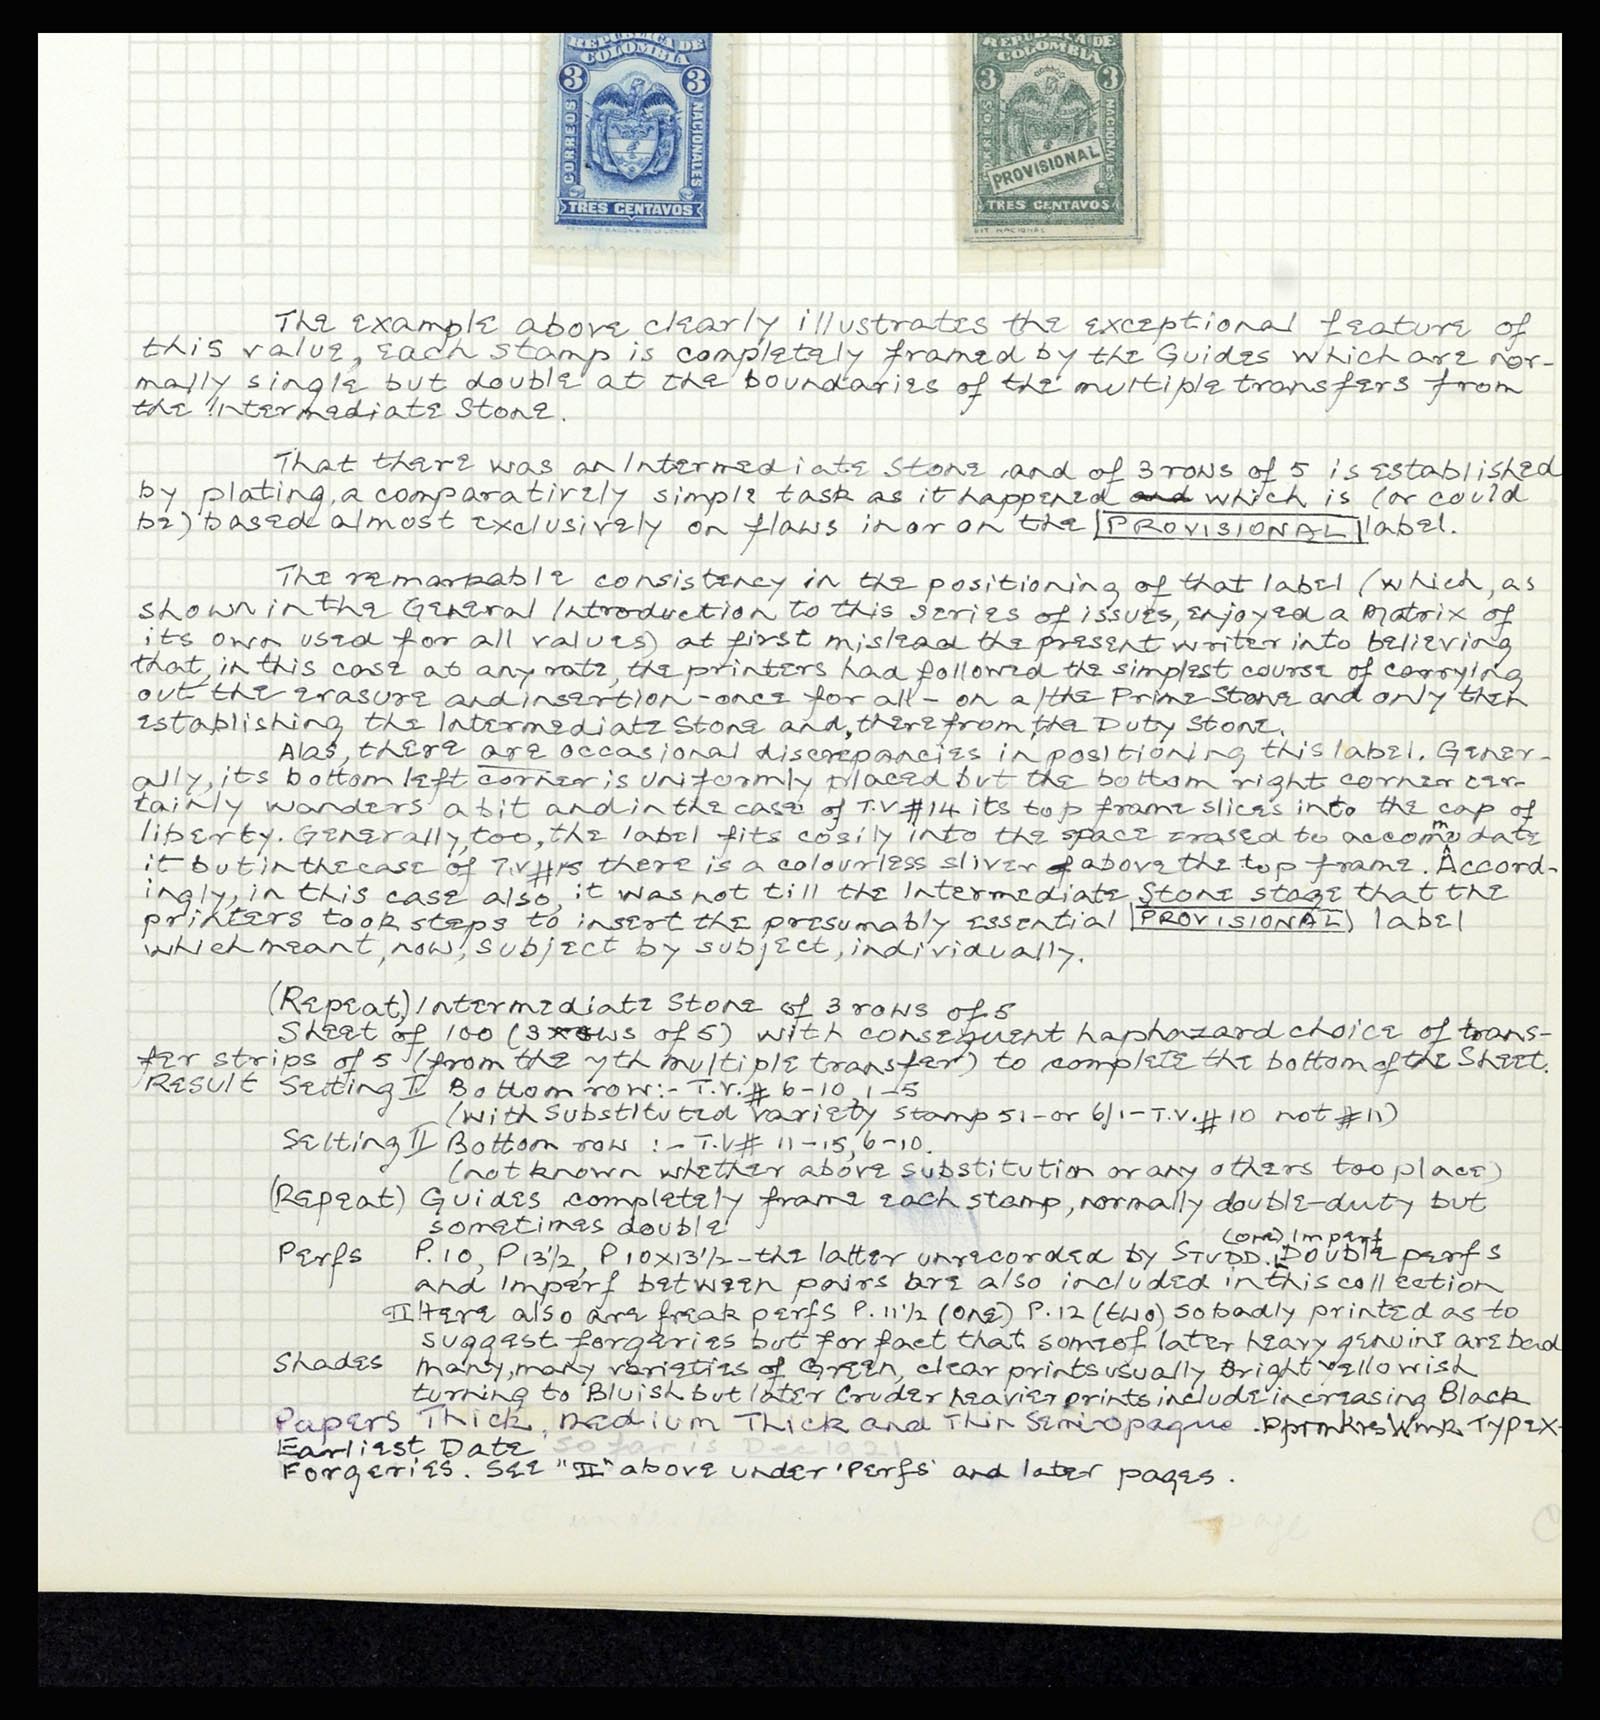 REPUBLICA DE
COLOMBIA
3 3
CORREOS
NACIONALES
TRES CENTAVOS
REPUBLICA DE
COLOMBIA
3 3
CORREOS
NACIONALES
PROVISIONAL
TRES CENTAVOS
LIT. NACIONAL
The example above clearly illustrates the exceptional feature of
this value, each stamp is completely framed by the Guides which are nor-
mally single but double at the boundaries of the multiple transfers from
the Intermediate Stone.
That there was an Intermediate Stone and of 3 rows of 5 is established
by plating, a comparatively simple task as it happened and which is (or could
be) based almost exclusively on flaws in or on the PROVISIONAL label.
The remarkable consistency in the positioning of that label (which, as
shown in the General Introduction to this series of issues, enjoyed a Matrix of
its own used for all values) at first mislead the present writer into believing
that, in this case at any rate, the printers had followed the simplest course of carrying
out the erasure and insertion - once for all - on a/the Prime Stone and only then
establishing the Intermediate Stone and, therefrom, the Duty Stone.
Alas, there are occasional discrepancies in positioning this label. Gener-
ally, its bottom left corner is uniformly placed but the bottom right corner cer-
tainly wanders a bit and in the case of T.V #14 its top frame slices into the cap of
liberty. Generally, too, the label fits cosily into the space erased to accommodate
it but in the case of T.V #15 there is a colourless sliver of above the top frame. Accord-
ingly, in this case also, it was not till the Intermediate Stone stage that the
printers took steps to insert the presumably essential PROVISIONAL label
which meant, now, subject by subject, individually.
(Repeat) Intermediate Stone of 3 rows of 5
Sheet of 100 (3 rows of 5) with consequent haphazard choice of trans-
fer strips of 5 (from the 7th multiple transfer) to complete the bottom of the Sheet.
Result Setting I Bottom row:- T.V.# 6-10, 1-5
(with substituted variety stamp 51 - or 6/1 - T.V.# 10 not #11)
Setting II Bottom row :- T.V# 11-15, 6-10.
(not known whether above substitution or any others too place)
(Repeat) Guides completely frame each stamp, normally double-duty but
sometimes double
(one) Imperf
Perfs P.10, P13½, P10x13½ - the latter unrecorded by STUDD. Double perfs
and Imperf between pairs are also included in this collection
II Here also are freak perfs P.11½ (one) P.12 (two) so badly printed as to
suggest forgeries but for fact that some of later heavy genuine are bad
Shades many, many varieties of Green, clear prints usually Bright yellowish
turning to Bluish but later Cruder heavier prints include increasing Black
Papers Thick, medium Thick and Thin Semi-opaque. Wmk Type X
Earliest Date So far is Dec 1921
Forgeries. See "II" above under 'Perfs' and later pages.